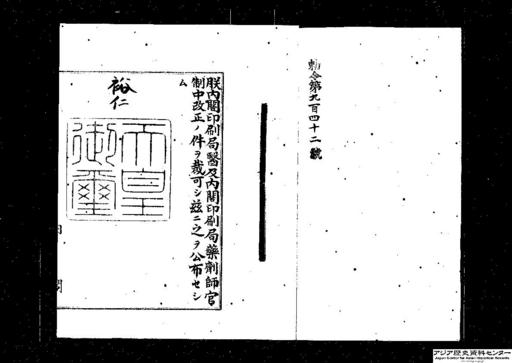 勅令第九百四十二號
朕内閣印刷局醫及内閣印刷局藥劑師官
制中改正ノ件ヲ裁可シ茲ニ之ヲ公布セシ
ム
裕仁
天皇
御璽
内閣
アジア歴史資料センター
Japan Center for Asian Historical Records